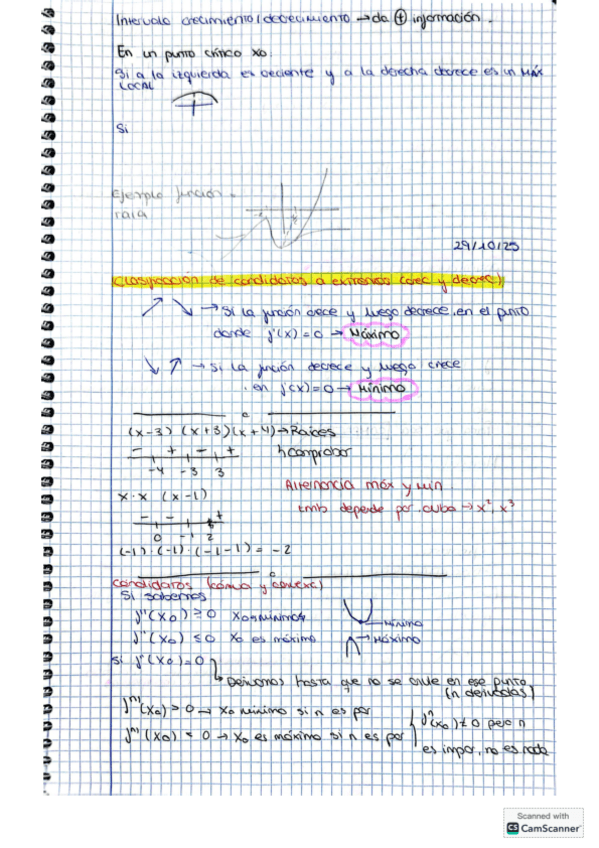 Intervalo crecimiento/decrecimiento → da ⊕ información.
En un punto crítico x0:
Si a la izquierda es creciente y a la derecha decrece es un MÁX
LOCAL
Si
Ejemplo función
rara
29/10/25
Clasificación de candidatos a extremos (crec y decrec)
→ Si la función crece y luego decrece, en el punto
donde f'(x) = 0 → Máximo
→ Si la función decrece y luego crece
en f'(x) = 0 → Mínimo
(x-3) (x+3) (x+4) → Raíces
- + - +
↳ comprobar
-4 -3 3
Alternancia máx y min
x·x (x-1)
tmb depende por
→ x², x³
- - +
0 -1 2
(-1)·(-1)·(-1-1) = -2
Candidatos (cónca y convexc)
Si sabemos
f''(x0) ≥ 0 x0 mínimo
→ Mínimo
f''(x0) ≤ 0 x0 es máximo
→ Máximo
si f''(x0) = 0
↳ Derivamos hasta que no se anule en ese punto
(n derivadas)
f^n(x0) > 0 → x0 mínimo si n es par
f^n(x0) ≠ 0 pero n
f^n(x0) < 0 → x0 es máximo si n es par
es impar, no es nada
Scanned with
CS CamScanner